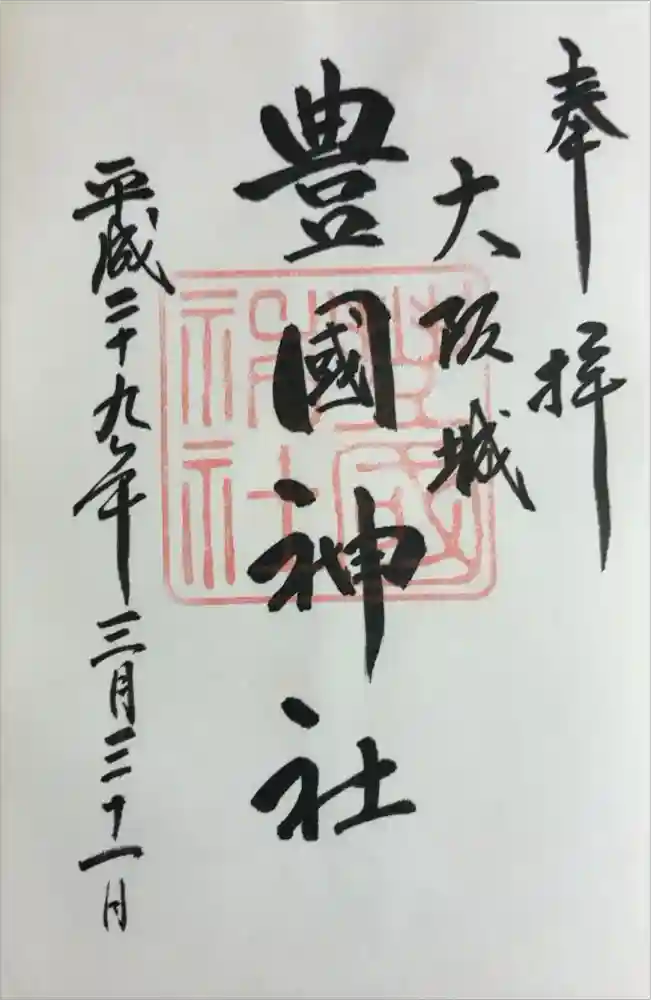 奉拝
大阪城
豊國神社
平成二十九年三月三十一日
豊國神社